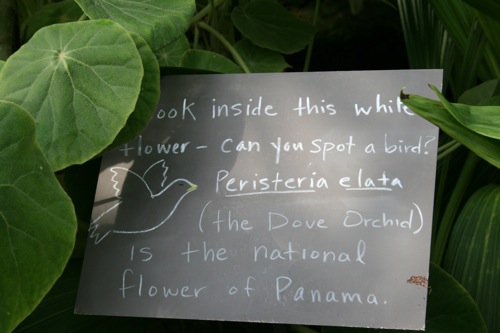 Look inside this white
flower - can you spot a bird?
Peristeria elata
(the Dove Orchid)
is the national
flower of Panama.